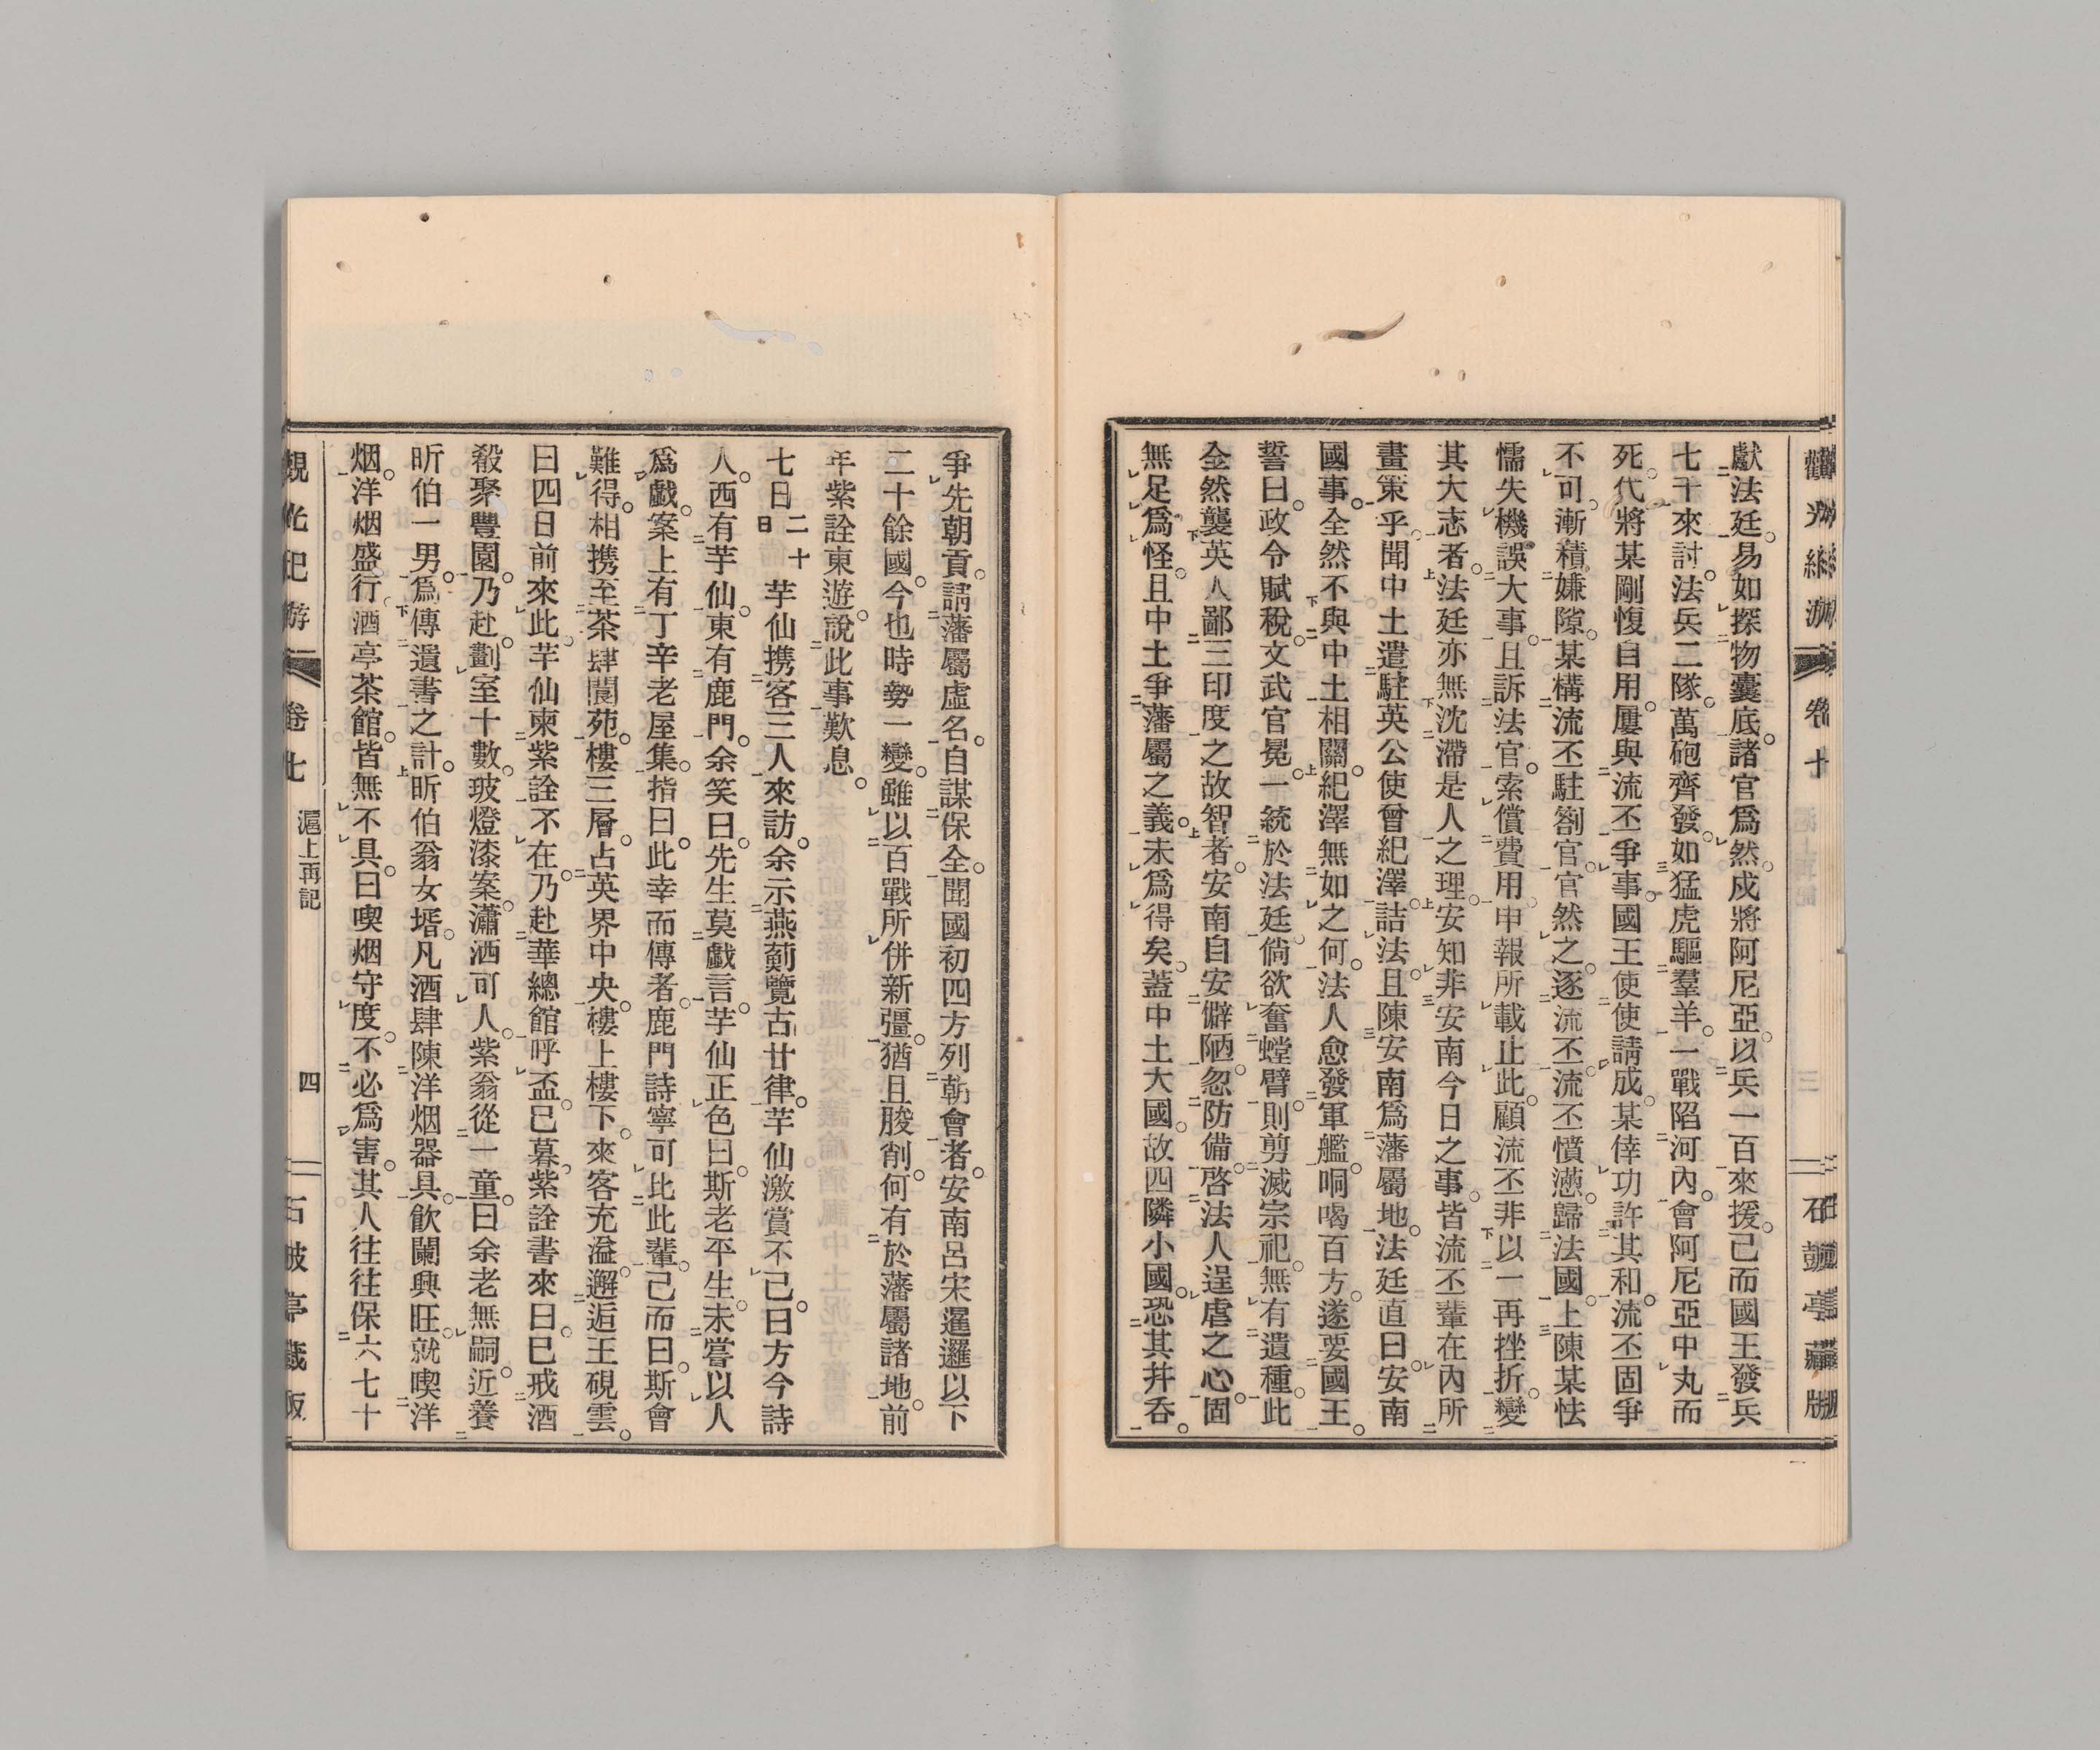 獻法廷。易如探物囊底。諸官爲然。戍將阿尼亞。以兵一百來援。已而國王發兵
七千來討。法兵二隊。萬砲齊發。如猛虎驅羣羊。一戰陷河內。會阿尼亞中丸而
死。代將某剛愎自用。屢與流丕爭事。國王使使請成。某倖功許其和。流丕固爭
不可。漸積嫌隙。某構流丕駐劄官。官然之。逐流丕。流丕憤懑。歸法國。上陳某怯
懦失機誤大事。且訴法官。索償費用。申報所載止此。顧流丕非以一再挫折。變
其大志者。法廷亦無沈滯是人之理。安知非安南今日之事。皆流丕輩在內所
畫策乎。聞中土遣駐英公使曾紀澤詰法。且陳安南爲藩屬地。法廷直曰。安南
國事。全然不與中土相關。紀澤無如之何。法人愈發軍艦。恫喝百方。遂要國王。
誓曰。政令賦稅。文武官冕。一統於法廷。倘欲奮螳臂。則剪滅宗祀。無有遺種。此
全然襲英人鄙三印度之故智者。安南自安僻陋。忽防備。啓法人逞虐之心。固
無足爲怪。且中土爭藩屬之義。未爲得矣。蓋中土大國。故四隣小國。恐其幷呑。
爭先朝貢。請藩屬虛名。自謀保全。聞國初四方列朝會者。安南呂宋暹邏以下
二十餘國。今也時勢一變。雖以百戰所併新疆。猶且朘削。何有於藩屬諸地。前
年紫詮東遊。說此事歎息。
七日二十日 芋仙携客三人來訪。余示燕薊覽古廿律。芋仙激賞不已。曰方今詩
人。西有芋仙。東有鹿門。余笑曰。先生莫戲言。芋仙正色曰。斯老平生。未嘗以人
爲戲。案上有丁辛老屋集。指曰。此幸而傳者。鹿門詩寧可比此輩。已而曰。斯會
難得。相携至茶肆閬苑。樓三層。占英界中央。樓上樓下。來客充溢。邂逅王硯雲。
曰四日前來此。芋仙柬紫詮。不在。乃赴華總館呼盃。已暮。紫詮書來曰。已戒酒
殽聚豐園。乃赴。劃室十數。玻燈漆案。瀟洒可人。紫翁從一童。曰余老無嗣。近養
昕伯一男。爲傳遺書之計。昕伯翁女壻。凡酒肆陳洋烟器具。飮闌興旺。就喫洋
烟。洋烟盛行。酒亭茶館。皆無不具。曰喫烟守度。不必爲害。其人往往保六七十
觀光紀游 卷七 滬上再記 四 石鼓亭藏版